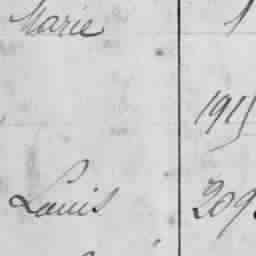 Marie 1
1915
Louis 209